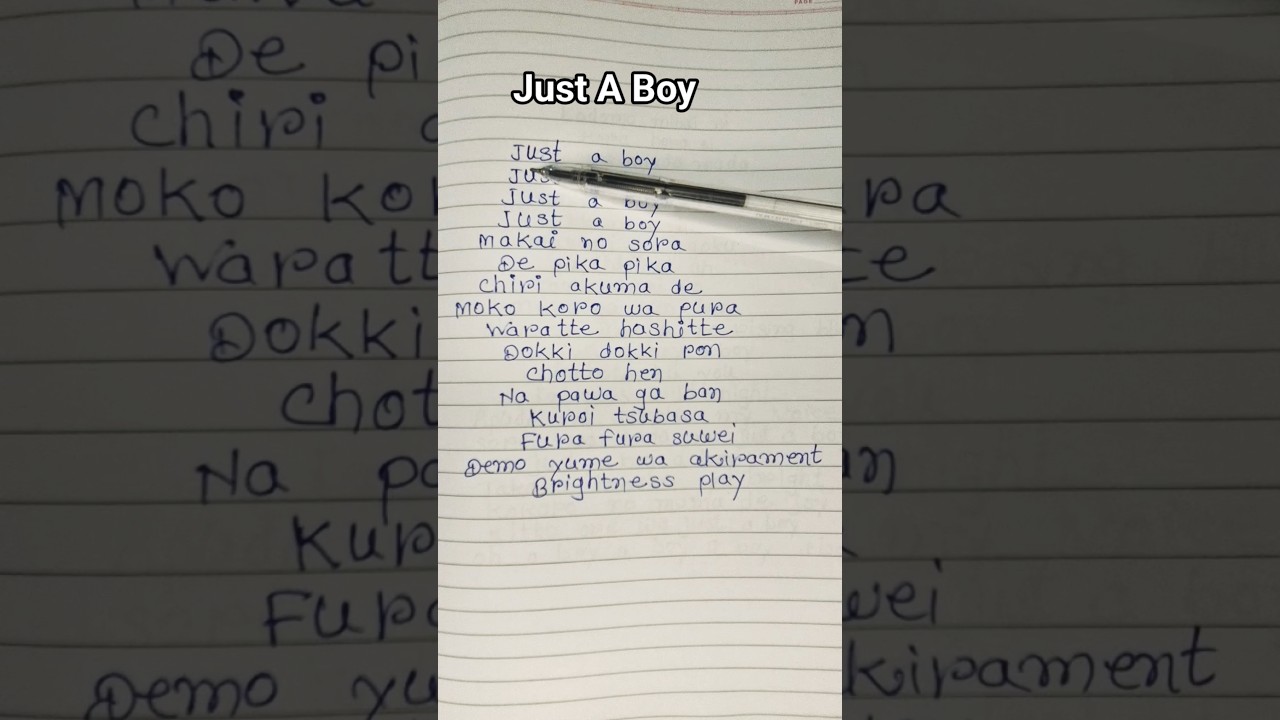 Just A Boy
Just a boy
Jus
Just a boy
Just a boy
Makai no sora
De pika pika
Chiri akuma de
Moko koro wa pura
Waratte hashitte
Dokki dokki pon
Chotto hen
Na pawa ga ban
Kuroi tsubasa
Fura fura suwei
Demo yume wa akirament
Brightness play